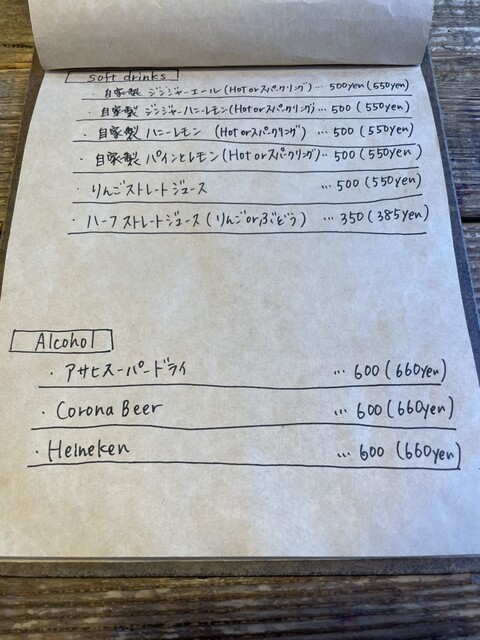 Soft drinks
・自家製 ジンジャーエール(Hot orスパークリング)… 500yen(550yen)
・自家製 ジンジャーハニーレモン(Hot orスパークリング)… 500(550yen)
・自家製 ハニーレモン (Hot orスパークリング) … 500(550yen)
・自家製 パインとレモン(Hot orスパークリング)… 500(550yen)
・りんごストレートジュース … 500(550yen)
・ハーフストレートジュース(りんごorぶどう) … 350(385yen)
Alcohol
・アサヒスーパードライ … 600(660yen)
・Corona Beer … 600(660yen)
・Heineken … 600(660yen)